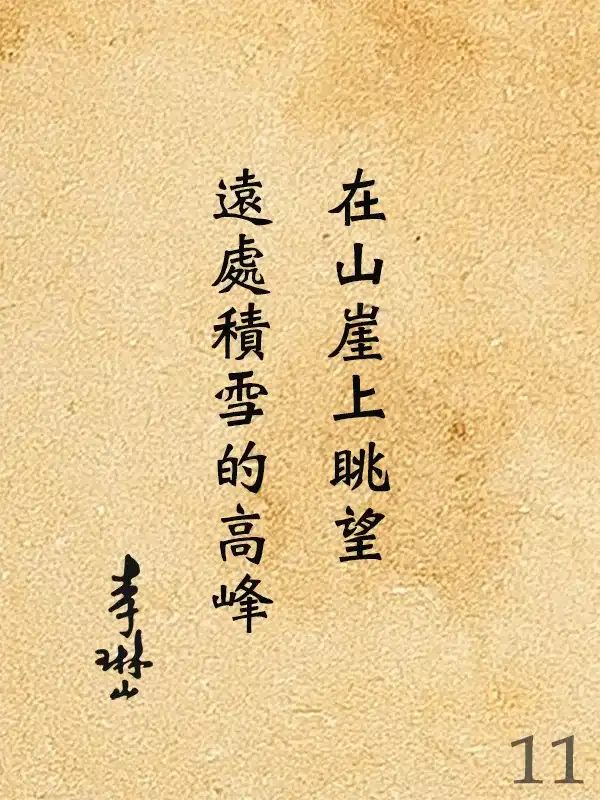 在山崖上眺望
遠處積雪的高峰
李琳山
11